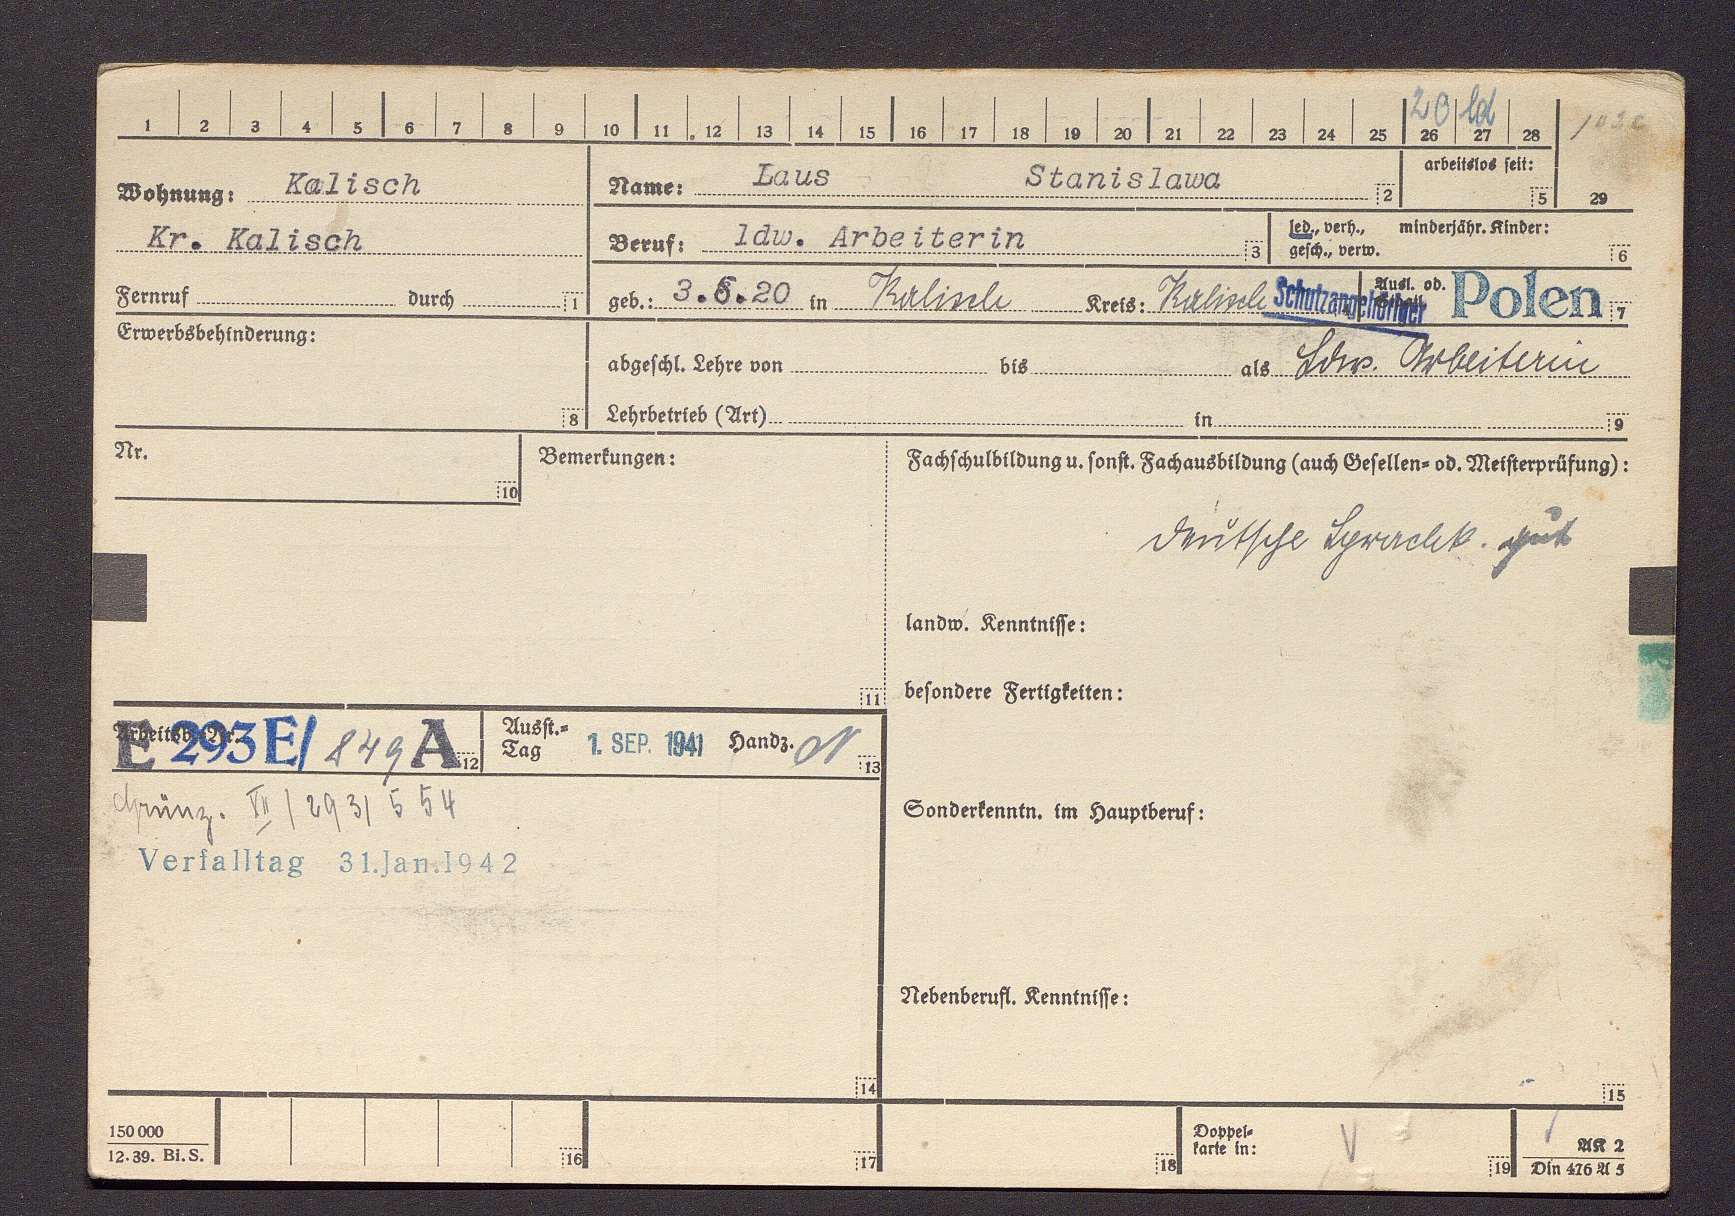 1 2 3 4 5 6 7 8 9 10 11 12 13 14 15 16 17 18 19 20 21 22 23 24 25 26 27 28 29
20 ld
Wohnung: Kalisch
Kr. Kalisch
Fernruf durch 1
Name: Laus Stanislawa 2
arbeitslos seit: 5
Beruf: ldw. Arbeiterin 3
led., verh., minderjähr. Kinder:
gesch., verw. 6
geb.: 3.5.20 in Kalisch Kreis: Kalisch Schutzangehöriger Ausl. od. Polen 7
Erwerbsbehinderung: 8
abgeschl. Lehre von bis als Ldw. Arbeiterin
Lehrbetrieb (Art) in 9
Nr. 10
Bemerkungen: 11
Fachschulbildung u. sonst. Fachausbildung (auch Gesellen= od. Meisterprüfung):
deutsche Sprachk. gut
landw. Kenntnisse:
besondere Fertigkeiten:
Sonderkenntn. im Hauptberuf:
Nebenberufl. Kenntnisse: 15
Arbeitsb.-Nr. E 293 E/ 849 A 12
Ausst.=
Tag 1. SEP. 1941 Handz. 13
Grünz. VII/293/554
Verfalltag 31.Jan.1942
14
150 000
12. 39. Bi. S.
16 17 18
Doppel=
karte in: V 19
AK 2
Din 476 A 5